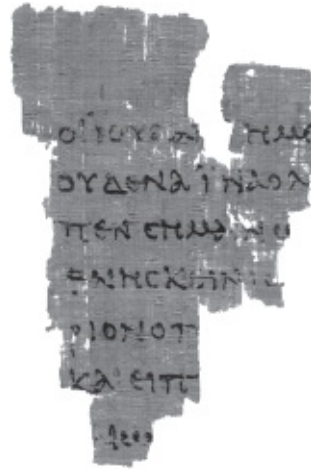 ΟΙ ΙΟΥΔΑΙ ΗΜΕ
ΟΥΔΕΝΑ ΪΝΑ Ο ΛΟ
ΠΕΝ CΗΜΑΙΝΩ
ΘΝΗCΚΕΙΝ ΙC
ΡΙΟΝ Ο Π
ΚΑΙ ΕΙΠ